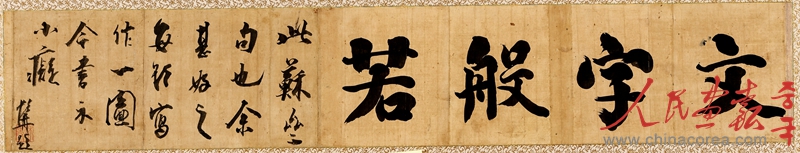 文字般若
此蘇齋
句也余
甚好之
每欲寫
作一圖
今書示
小癡
www.chinacorea.com